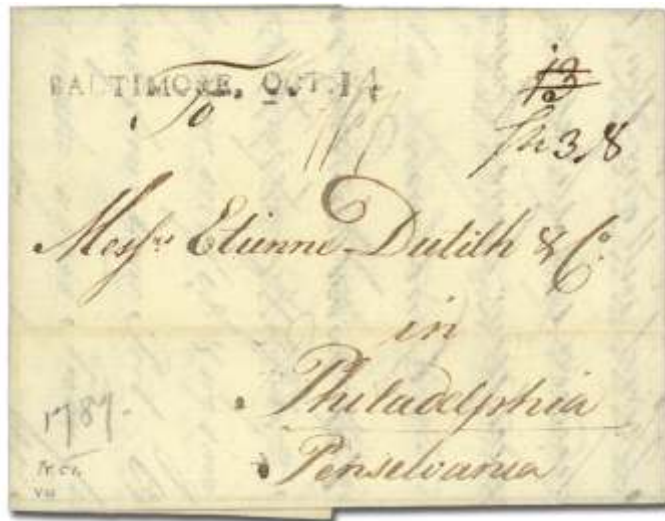 BALTIMORE, OCT. 14
To
Messrs Etienne Dutilh & Co.
in
Philadelphia
Penselvania
1789.